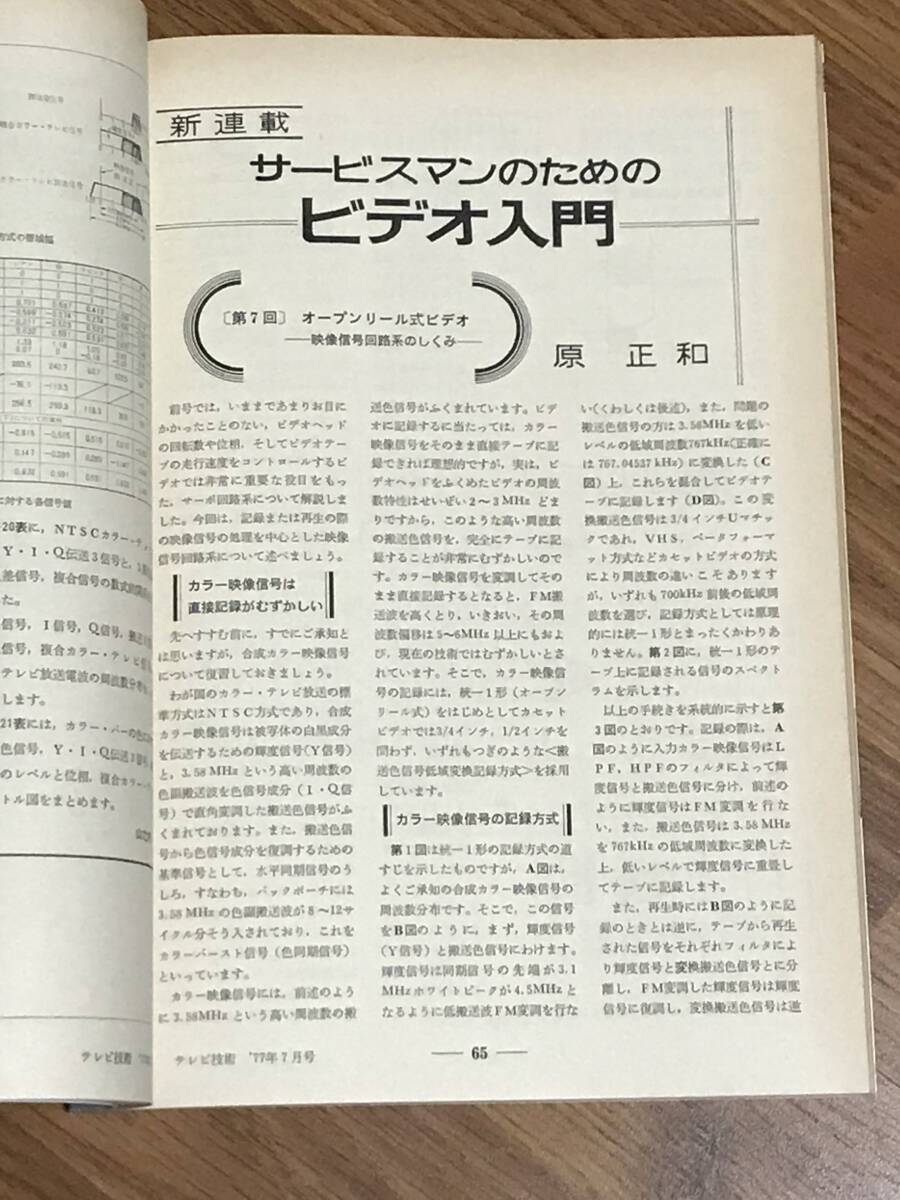 新連載
サービスマンのための
ビデオ入門
〔第7回〕 オープンリール式ビデオ
──映像信号回路系のしくみ──
原 正和
前号では，いままであまりお目に
かかったことのない，ビデオヘッド
の回転数や位相，そしてビデオテー
プの走行速度をコントロールするビ
デオでは非常に重要な役目をもっ
た，サーボ回路系について解説しま
した。今回は，記録または再生の際
の映像信号の処理を中心とした映像
信号回路系について述べましょう。
カラー映像信号は
直接記録がむずかしい
先へすすむ前に，すでにご承知と
は思いますが，合成カラー映像信号
について復習しておきましょう。
わが国のカラー・テレビ放送の標
準方式はNTSC方式であり，合成
カラー映像信号は被写体の白黒成分
を伝送するための輝度信号(Y信号)
と，3.58 MHz という高い周波数の
色副搬送波を色信号成分（I・Q信
号）で直角変調した搬送色信号がふ
くまれております。また，搬送色信
号から色信号成分を復調するための
基準信号として，水平同期信号のう
しろ，すなわち，バックポーチには
3.58 MHz の色副搬送波が 8～12サ
イクル分そう入されており，これを
カラーバースト信号（色同期信号）
といっています。
カラー映像信号には，前述のよう
に 3.58MHz という高い周波数の搬
送色信号がふくまれています。ビデ
オに記録するに当たっては，カラー
映像信号をそのまま直接テープに記
録できれば理想的ですが，実は，ビ
デオヘッドをふくめたビデオの周波
数特性はせいぜい 2～3 MHz どま
りですから，このような高い周波数
の搬送色信号を，完全にテープに記
録することが非常にむずかしいので
す。カラー映像信号を変調してその
まま直接記録するとなると，FM搬
送波を高くとり，いきおい，その周
波数偏移は 5～6MHz 以上にもおよ
び，現在の技術ではむずかしいとさ
れています。そこで，カラー映像信
号の記録には，統一1形（オープン
リール式）をはじめとしてカセット
ビデオでは3/4インチ，1/2インチを
問わず，いずれもつぎのような＜搬
送色信号低域変換記録方式＞を採用
しています。
カラー映像信号の記録方式
第1図は統一1形の記録方式の道
すじを示したものですが，A図は，
よくご承知の合成カラー映像信号の
周波数分布です。そこで，この信号
をB図のように，まず，輝度信号
(Y信号) と搬送色信号にわけます。
輝度信号は同期信号の先端が 3.1
MHzホワイトピークが 4.5MHz と
なるように低搬送波FM変調を行な
い(くわしくは後述)，また，問題の
搬送色信号の方は 3.58MHz を低い
レベルの低域周波数767kHz(正確に
は 767.04537 kHz) に変換した（C
図）上，これらを混合してビデオテ
ープに記録します（D図）。この変
換搬送色信号は 3/4 インチUマチッ
クであれ，VHS，ベータフォーマ
ット方式などカセットビデオの方式
により周波数の違いこそあります
が，いずれも 700kHz 前後の低域周
波数を選び，記録方式としては原理
的には統一1形とまったくかわりあ
りません。第2図に，統一1形のテ
ープ上に記録される信号のスペクト
ラムを示します。
以上の手続きを系統的に示すと第
3図のとおりです。記録の際は，A
図のように入力カラー映像信号はL
PF，HPFのフィルタによって輝
度信号と搬送色信号に分け，前述の
ように輝度信号はFM変調を行な
い，また，搬送色信号は 3.58 MHz
を 767kHz の低域周波数に変換した
上，低いレベルで輝度信号に重畳し
てテープに記録します。
また，再生時にはB図のように記
録のときとは逆に，テープから再生
された信号をそれぞれフィルタによ
り輝度信号と変換搬送色信号とに分
離し，FM変調した輝度信号は輝度
信号に復調し，変換搬送色信号は逆
テレビ技術 '77年7月号
── 65 ──